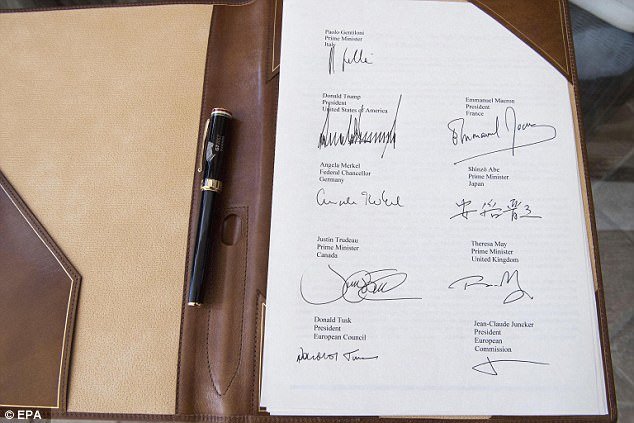 Paolo Gentiloni
Prime Minister
Italy
Donald Trump
President
United States of America
Emmanuel Macron
President
France
Angela Merkel
Federal Chancellor
Germany
Shinzō Abe
Prime Minister
Japan
Justin Trudeau
Prime Minister
Canada
Theresa May
Prime Minister
United Kingdom
Donald Tusk
President
European Council
Jean-Claude Juncker
President
European
Commission
© EPA